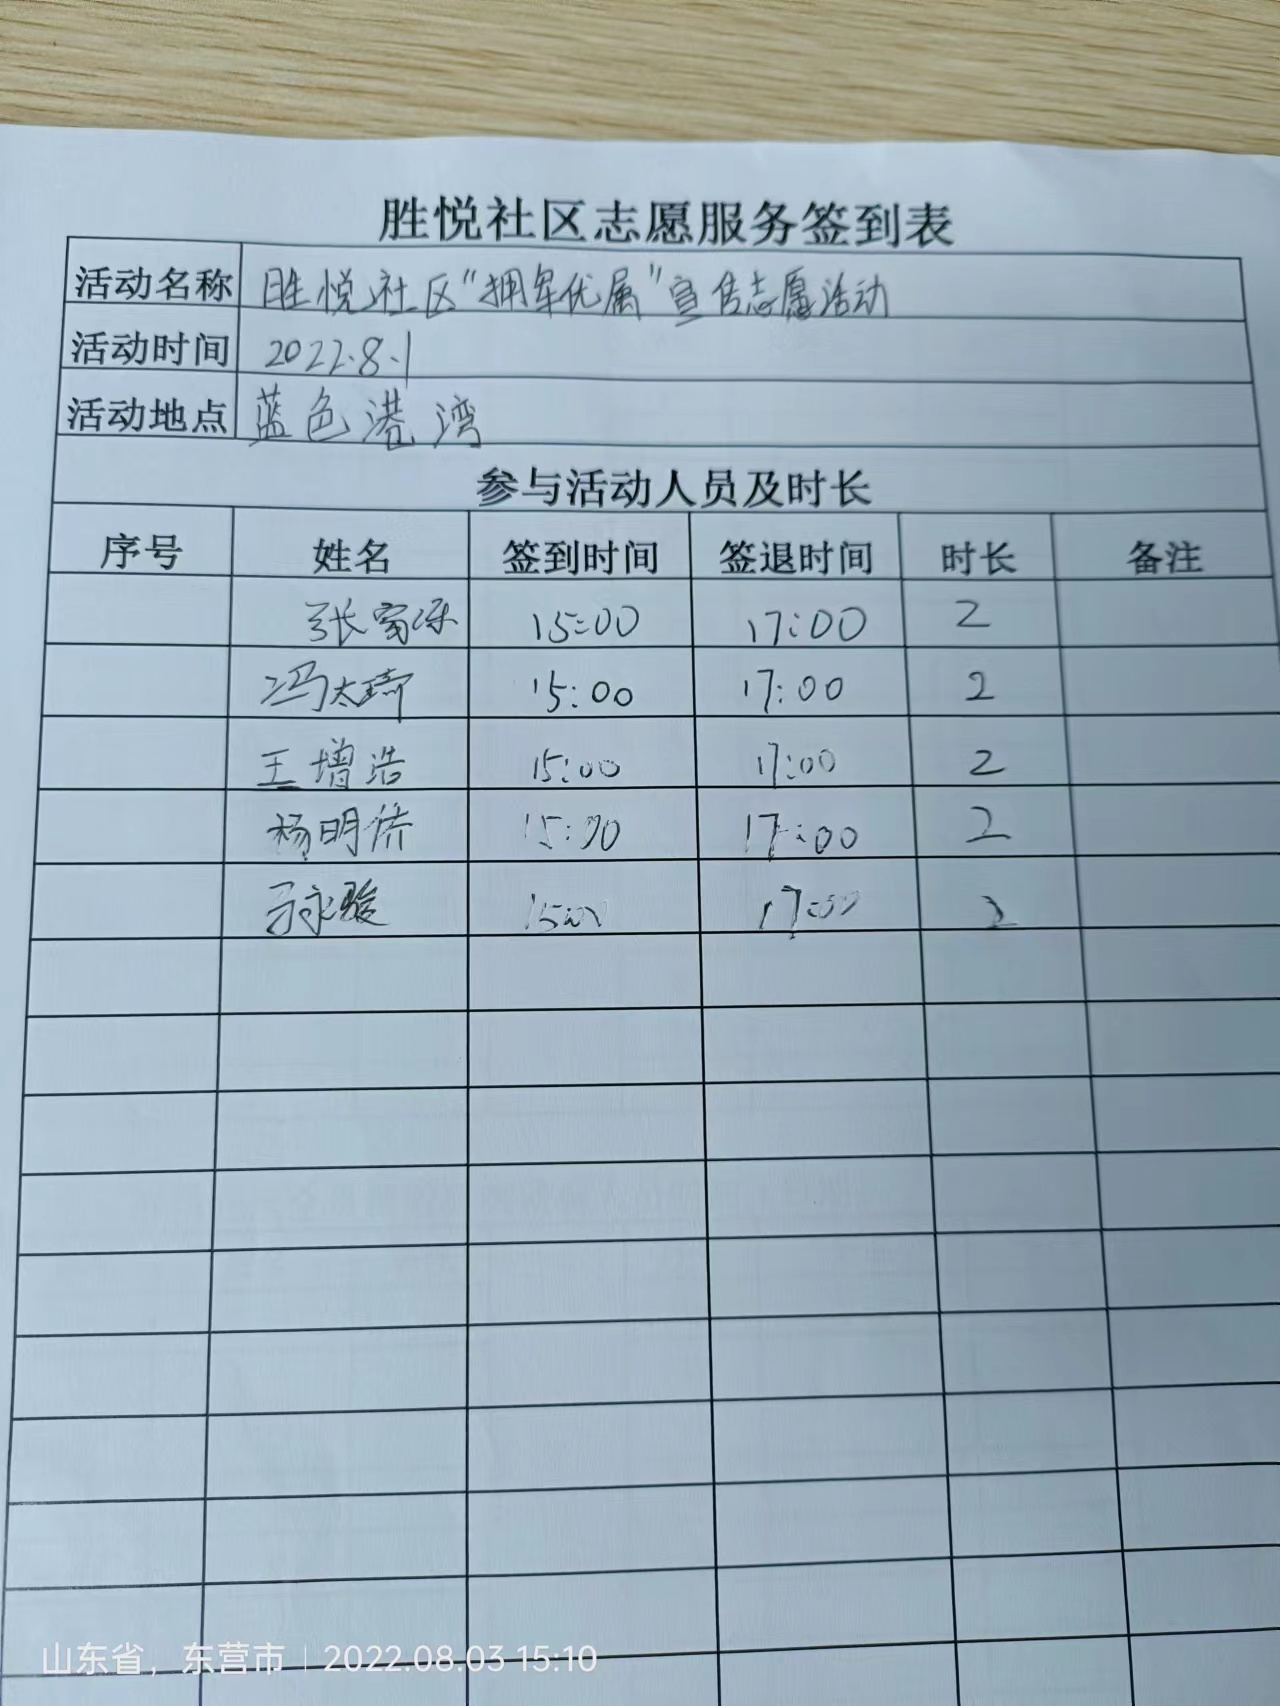 胜悦社区志愿服务签到表
活动名称 胜悦社区“拥军优属”宣传志愿活动
活动时间 2022.8.1
活动地点 蓝色港湾
参与活动人员及时长
序号 姓名 签到时间 签退时间 时长 备注
张富 15:00 17:00 2
冯太琦 15:00 17:00 2
王增浩 15:00 17:00 2
杨明侨 15:00 17:00 2
永骏 15:00 17:00 2
山东省，东营市 | 2022.08.03 15:10